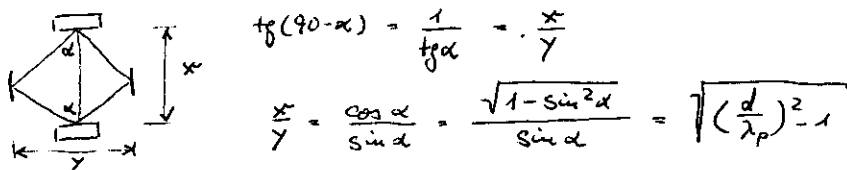 tg(90-α) = 1/tgα = x/y
α
x
α
x/y = cos α/sin α = √(1 - sin²α)/sin α = √((d/λp)² - 1)
y